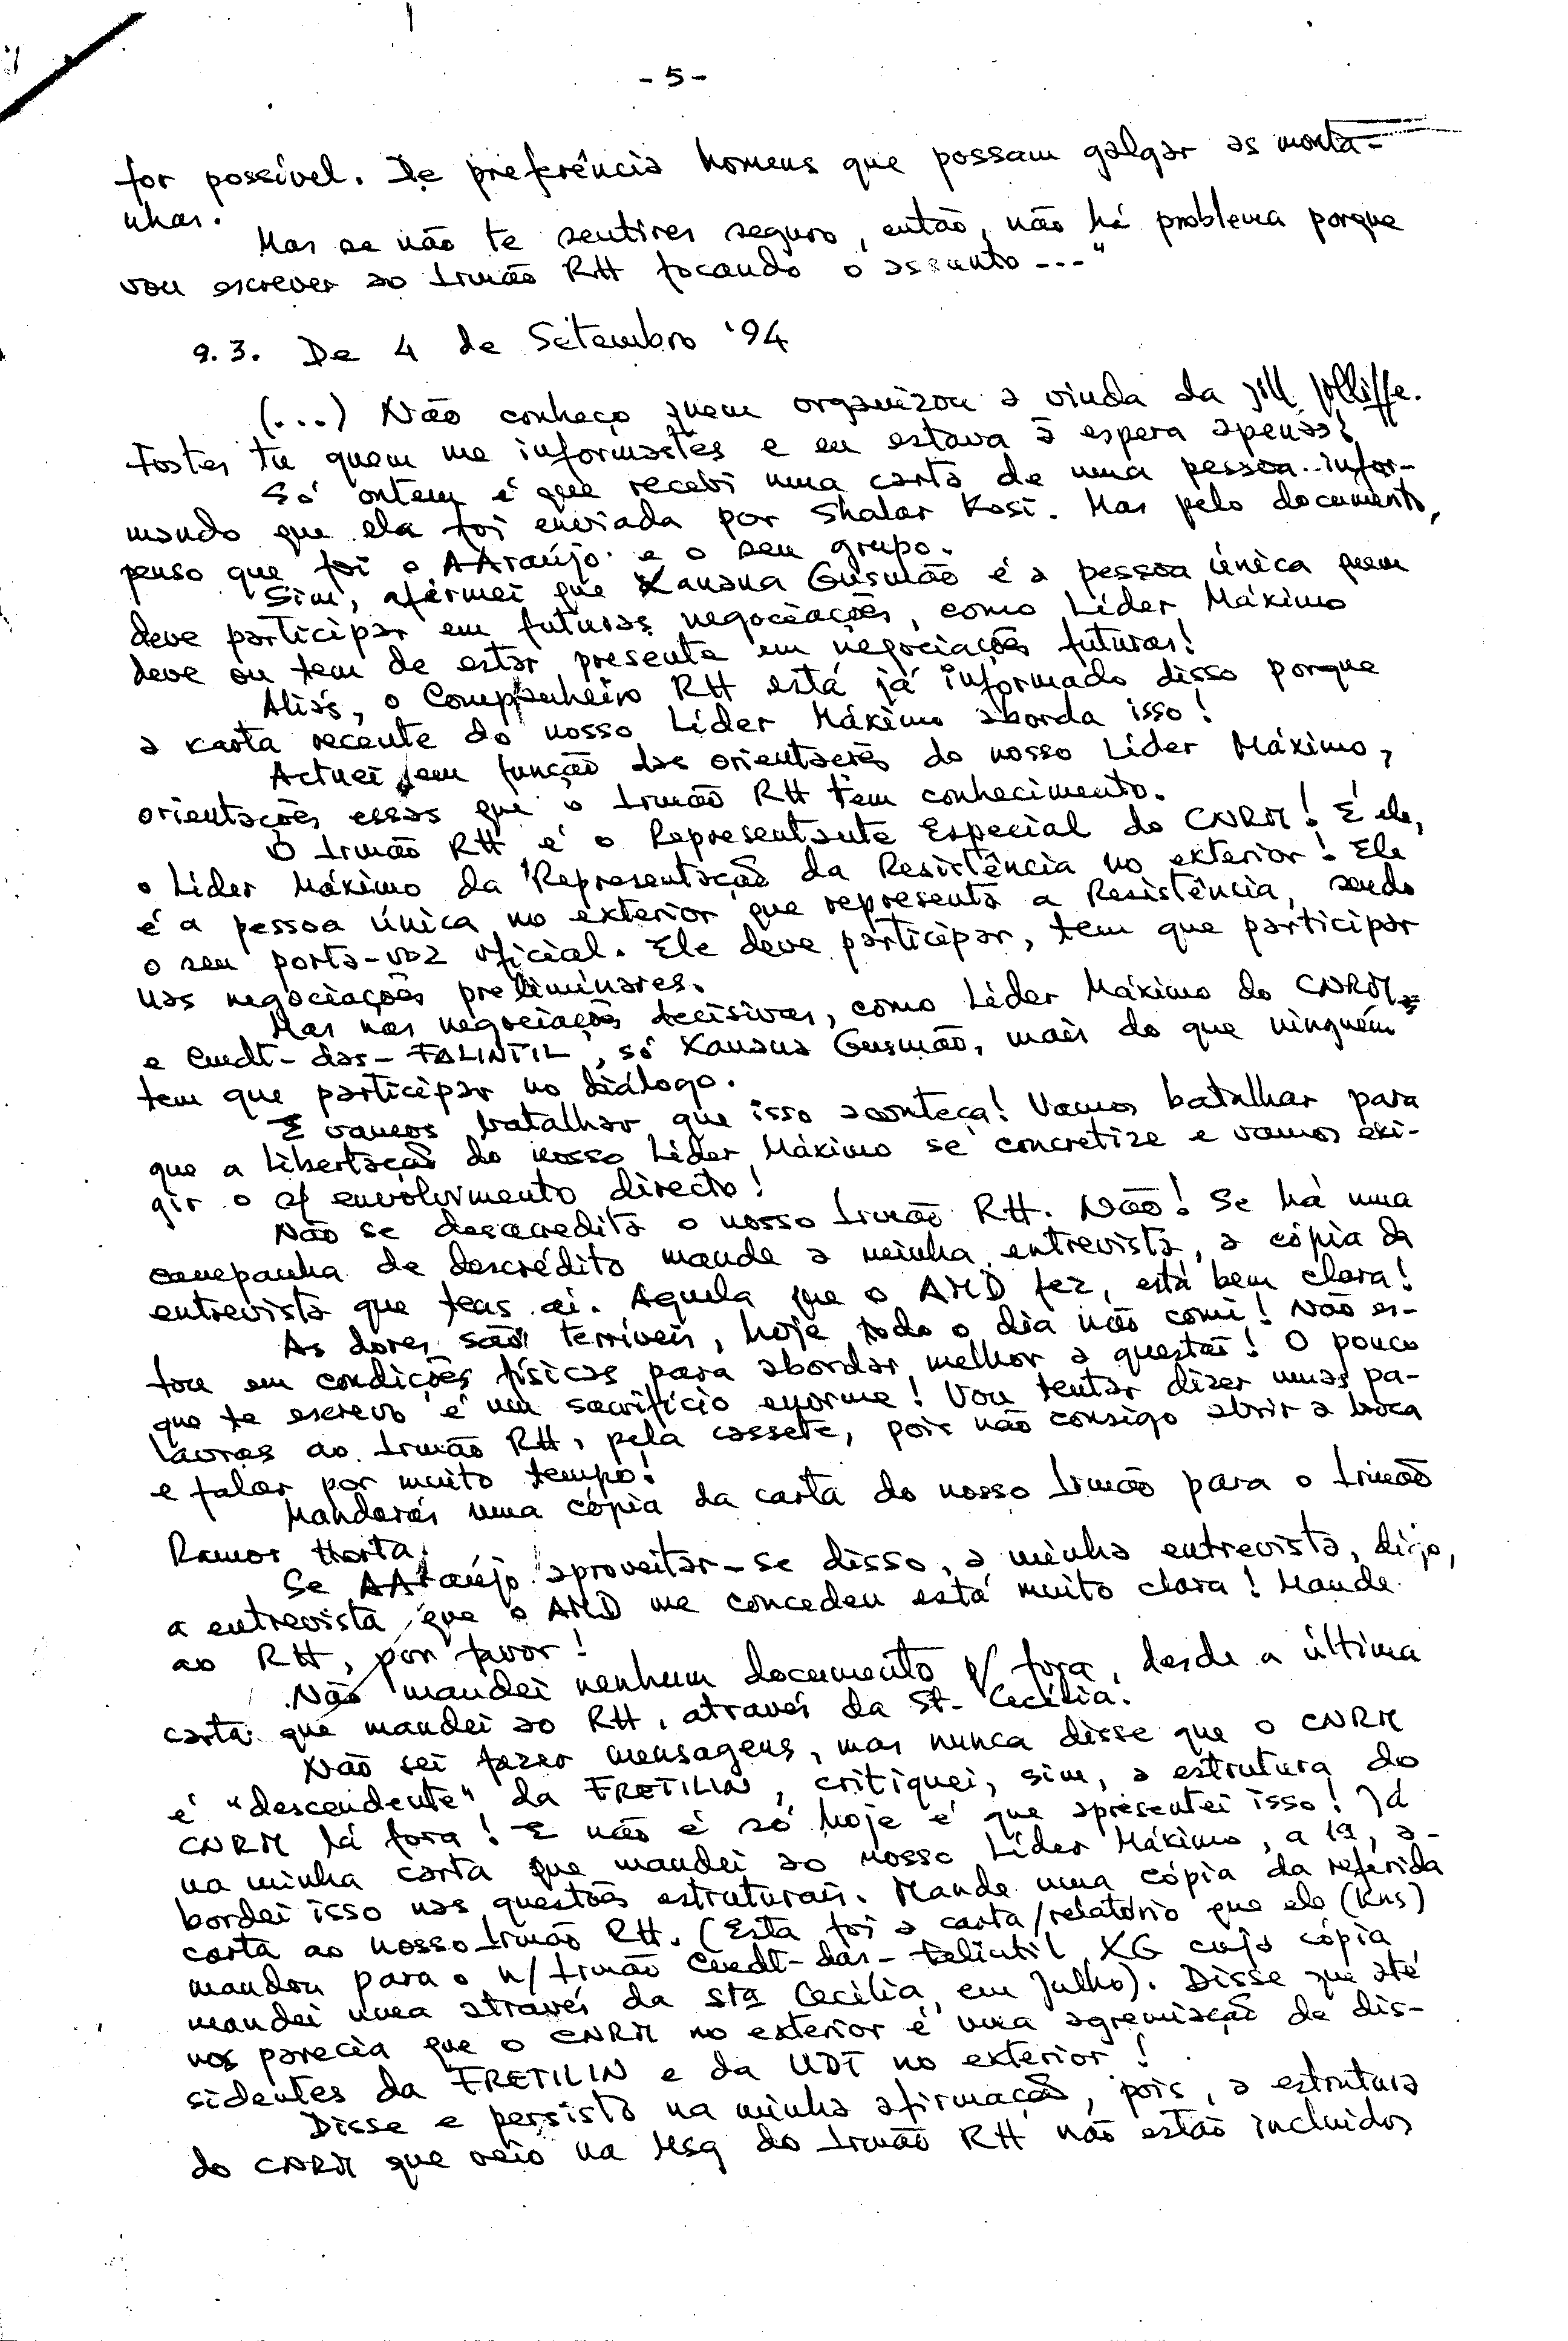 - 5 -
for possível. De preferência homens que possam galgar as monta-
nhas.
Mas se não te sentires seguro, então, não há problema porque
vou escrever ao Irmão RH focando o assunto ---"
9.3. De 4 de Setembro '94
(...) Não conheço quem organizou a vinda da Jill Jolliffe.
Fostes tu quem me informastes e eu estava à espera apenas!
Só ontem é que recebi uma carta de uma pessoa infor-
mando que ela foi enviada por Shalar Kosi. Mas pelo documento,
penso que foi o AAraújo e o seu grupo.
Sim, afirmei que Xanana Gusmão é a pessoa única quem
deve participar em futuras negociações, como Líder Máximo
deve ou tem de estar presente em negociações futuras!
Aliás, o Companheiro RH está já informado disso porque
a carta recente do nosso Líder Máximo aborda isso!
Actuei em função das orientações do nosso Líder Máximo,
orientações essas que o Irmão RH tem conhecimento.
O Irmão RH é o Representante Especial do CNRM! É ele,
o Líder Máximo da Representação da Resistência no exterior! Ele
é a pessoa única no exterior que representa a Resistência, sendo
o seu porta-voz oficial. Ele deve participar, tem que participar
nas negociações preliminares.
Mas nas negociações decisivas, como Líder Máximo do CNRM
e Cmdt-das-FALINTIL, só Xanana Gusmão, mais do que ninguém
tem que participar no diálogo.
E vamos batalhar que isso aconteça! Vamos batalhar para
que a libertação do nosso Líder Máximo se concretize e vamos exi-
gir o s/ envolvimento directo!
Não se desacredita o nosso Irmão RH. Não! Se há uma
campanha de descrédito mande a minha entrevista, a cópia da
entrevista que tens aí. Aquela que o AMD fez, está bem clara!
As dores são terríveis, hoje todo o dia não comi! Não es-
tou em condições físicas para abordar melhor a questão! O pouco
que te escrevo é um sacrifício enorme! Vou tentar dizer umas pa-
lavras ao Irmão RH, pela cassete, pois não consigo abrir a boca
e falar por muito tempo!
Mandarás uma cópia da carta do nosso Irmão para o Irmão
Ramos Horta.
Se AAraújo aproveitar-se disso, a minha entrevista, digo,
a entrevista que o AMD me concedeu está muito clara! Mande
ao RH, por favor!
Não mandei nenhum documento p/ fora, desde a última
carta que mandei ao RH, através da St- Cecília.
Não sei fazer mensagens, mas nunca disse que o CNRM
é "descendente" da FRETILIN, critiquei, sim, a estrutura do
CNRM lá fora! E não é só hoje é que apresentei isso! Já
na minha carta que mandei ao nosso Líder Máximo, a 1ª, a-
bordei isso nas questões estruturais. Mande uma cópia da referida
carta ao nosso Irmão RH. (Esta foi a carta/relatório que ele (Kns)
mandou para o n/ Irmão Cmdt-das-Falintil XG cuja cópia
mandei uma através da Stª Cecília, em Julho). Disse que até
nos parecia que o CNRM no exterior é uma agremiação de dis-
sidentes da FRETILIN e da UDT no exterior!
Disse e persisto na minha afirmação, pois, a estrutura
do CNRM que veio na Msg do Irmão RH não estão incluídos